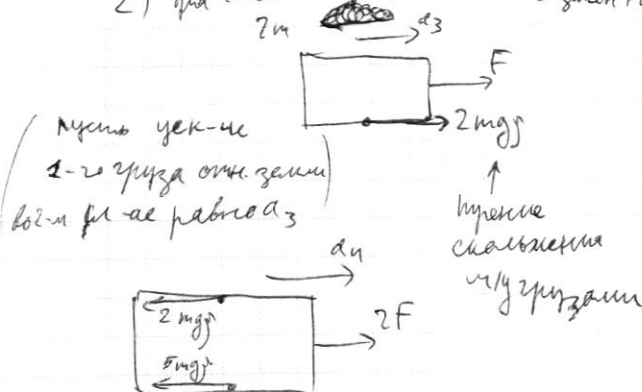 2)
2m
a₃
F
2mgμ
(пусть уск-ие
1-го груза отн. земли
во 2-м сл-ае равно a₃)
трение
скольжения
м/у грузами
a₄
2mgμ
2F
5mgμ